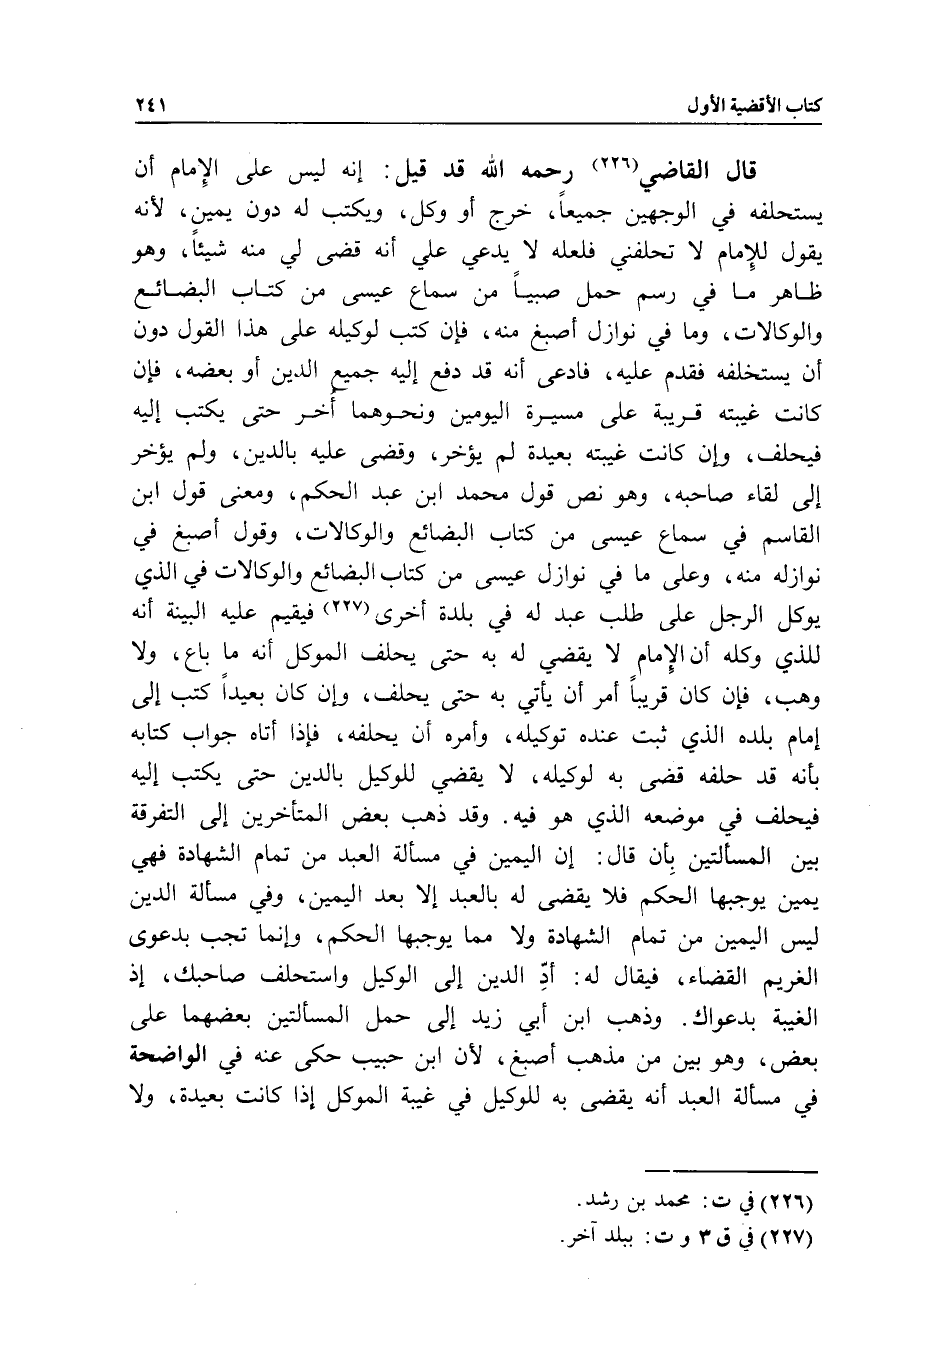 كتاب الأقضية الأول ٢٤١
قال القاضي(٢٢٦) رحمه الله قد قيل: إنه ليس على الإمام أن
يستحلفه في الوجهين جميعاً، خرج أو وكل، ويكتب له دون يمين، لأنه
يقول للإمام لا تحلفني فلعله لا يدعي علي أنه قضى لي منه شيئاً، وهو
ظاهر ما في رسم حمل صبياً من سماع عيسى من كتاب البضائع
والوكالات، وما في نوازل أصبغ منه، فإن كتب لوكيله على هذا القول دون
أن يستخلفه فقدم عليه، فادعى أنه قد دفع إليه جميع الدين أو بعضه، فإن
كانت غيبته قريبة على مسيرة اليومين ونحوهما أُخر حتى يكتب إليه
فيحلف، وإن كانت غيبته بعيدة لم يؤخر، وقضى عليه بالدين، ولم يؤخر
إلى لقاء صاحبه، وهو نص قول محمد ابن عبد الحكم، ومعنى قول ابن
القاسم في سماع عيسى من كتاب البضائع والوكالات، وقول أصبغ في
نوازله منه، وعلى ما في نوازل عيسى من كتاب البضائع والوكالات في الذي
يوكل الرجل على طلب عبد له في بلدة أخرى(٢٢٧) فيقيم عليه البينة أنه
للذي وكله أن الإمام لا يقضي له به حتى يحلف الموكل أنه ما باع، ولا
وهب، فإن كان قريباً أمر أن يأتي به حتى يحلف، وإن كان بعيداً كتب إلى
إمام بلده الذي ثبت عنده توكيله، وأمره أن يحلفه، فإذا أتاه جواب كتابه
بأنه قد حلفه قضى به لوكيله، لا يقضي للوكيل بالدين حتى يكتب إليه
فيحلف في موضعه الذي هو فيه. وقد ذهب بعض المتأخرين إلى التفرقة
بين المسألتين بِأن قال: إن اليمين في مسألة العبد من تمام الشهادة فهي
يمين يوجبها الحكم فلا يقضى له بالعبد إلا بعد اليمين، وفي مسألة الدين
ليس اليمين من تمام الشهادة ولا مما يوجبها الحكم، وإنما تجب بدعوى
الغريم القضاء، فيقال له: أدِّ الدين إلى الوكيل واستحلف صاحبك، إذ
الغيبة بدعواك. وذهب ابن أبي زيد إلى حمل المسألتين بعضهما على
بعض، وهو بين من مذهب أصبغ، لأن ابن حبيب حكى عنه في الواضحة
في مسألة العبد أنه يقضى به للوكيل في غيبة الموكل إذا كانت بعيدة، ولا
(٢٢٦) في ت: محمد بن رشد.
(٢٢٧) في ق ٣ و ت: ببلد آخر.